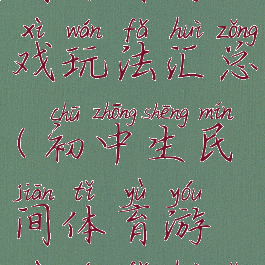 xì wán fǎ huì zǒng
戏玩法汇总
chū zhōng shēng mín
（初中生民
jiān tǐ yù yóu
间体育游